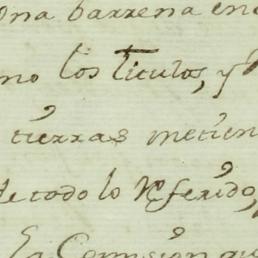 ona barrena en
no los titulos, y
tierras metien
de todo lo Referido,
la Comision que